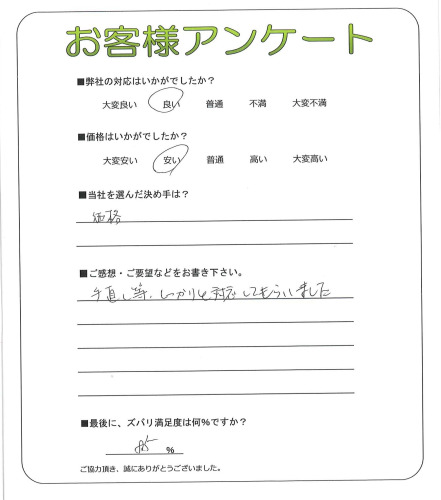 お客様アンケート
■弊社の対応はいかがでしたか？
大変良い 良い 普通 不満 大変不満
■価格はいかがでしたか？
大変安い 安い 普通 高い 大変高い
■当社を選んだ決め手は？
価格
■ご感想・ご要望などをお書き下さい。
手直し等、しっかりと対応してもらいました
■最後に、ズバリ満足度は何%ですか？
85 %
ご協力頂き、誠にありがとうございました。